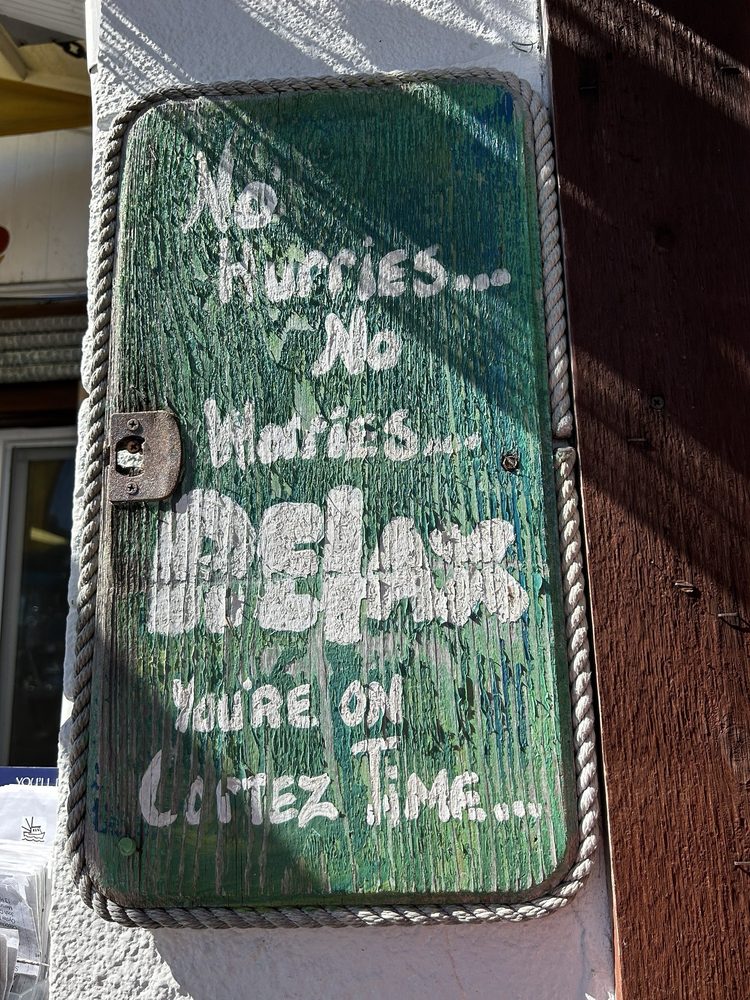 No
Hurries...
No
Worries....
Relax
You're on
Cortez Time...
YOU'LL